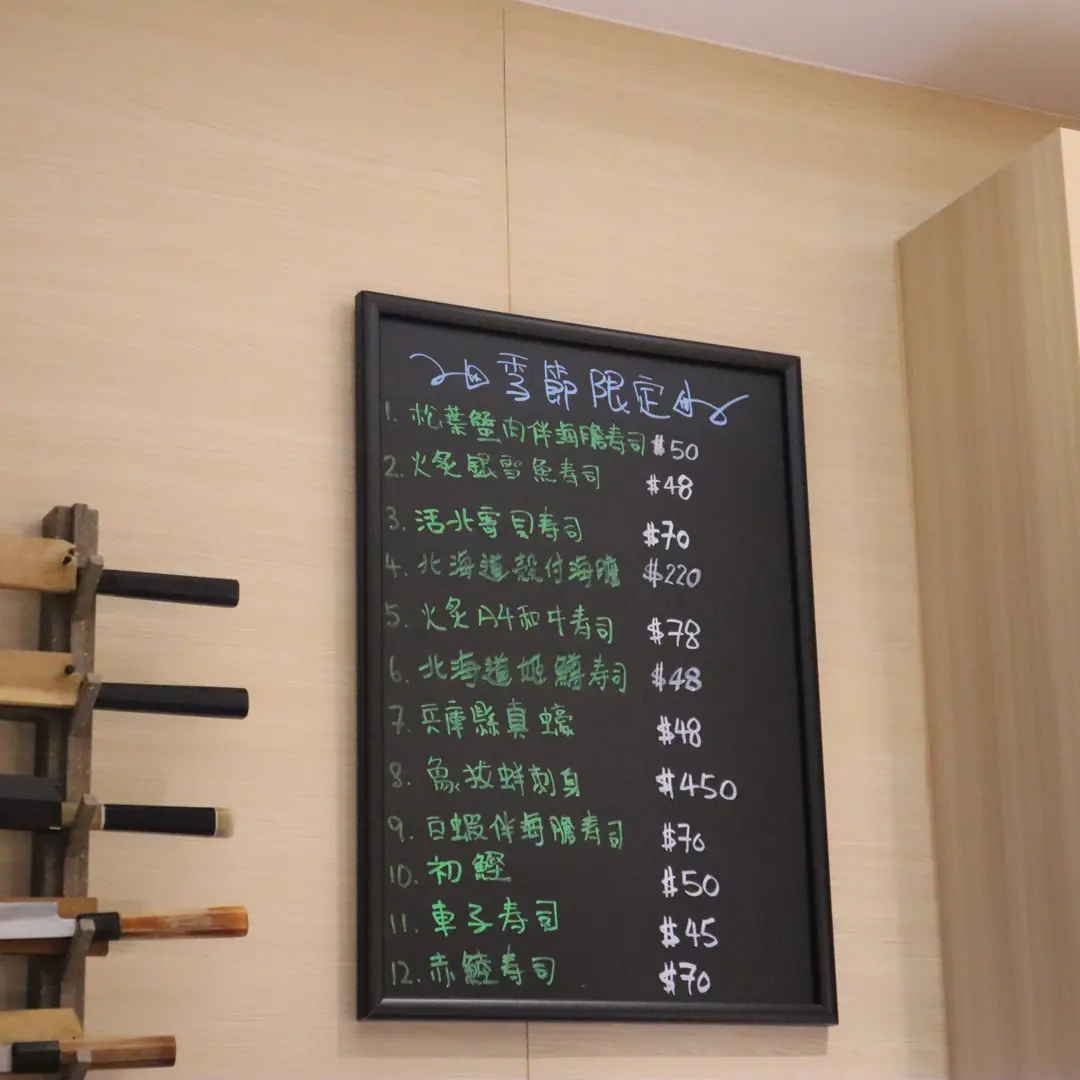 季節限定
1. 松葉蟹肉伴海膽寿司 $50
2. 火炙銀雪魚寿司 $48
3. 活北寄貝寿司 $70
4. 北海道殼付海膽 $220
5. 火炙A4和牛寿司 $78
6. 北海道姬鱒寿司 $48
7. 兵庫縣真蠔 $48
8. 象拔蚌刺身 $450
9. 白蝦伴海膽寿司 $70
10. 初鰹 $50
11. 車子寿司 $45
12. 赤鯥寿司 $70